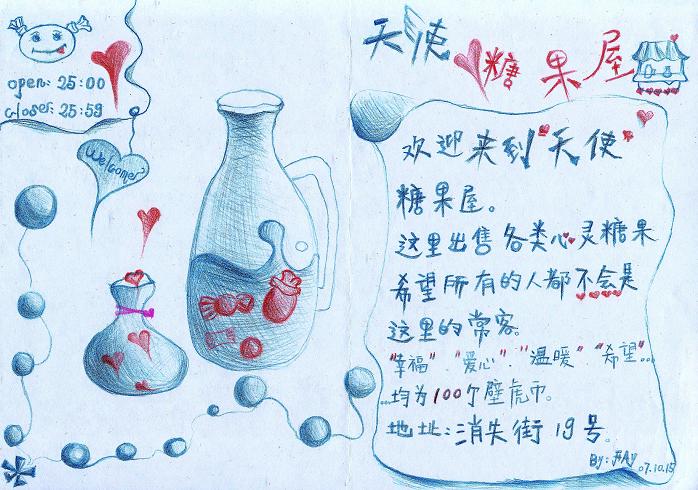 open: 25:00
close: 25:59
Welcome
天使糖果屋
欢迎来到"天使"
糖果屋。
这里出售各类心灵糖果
希望所有的人都不会是
这里的常客。
"幸福"."爱心"."温暖"."希望"...
...均为100个壁虎币。
地址:消失街19号。
07.10.15